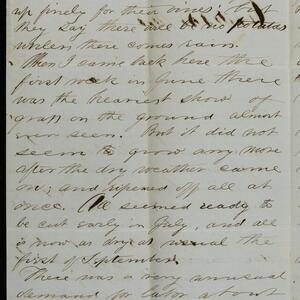 up finely for their vines; but
they say there will be no potatoes
unless there comes rain.
When I came back here the
first week in June there
was the heaviest show of
grass on the ground almost
ever seen. But it did not
seem to grow any more
after the dry weather came
on, and ripened off all at
once. All seemed ready to
be cut early in July, and all
is now as dry as usual the
first of September.
There was a very unusual
demand for labor about